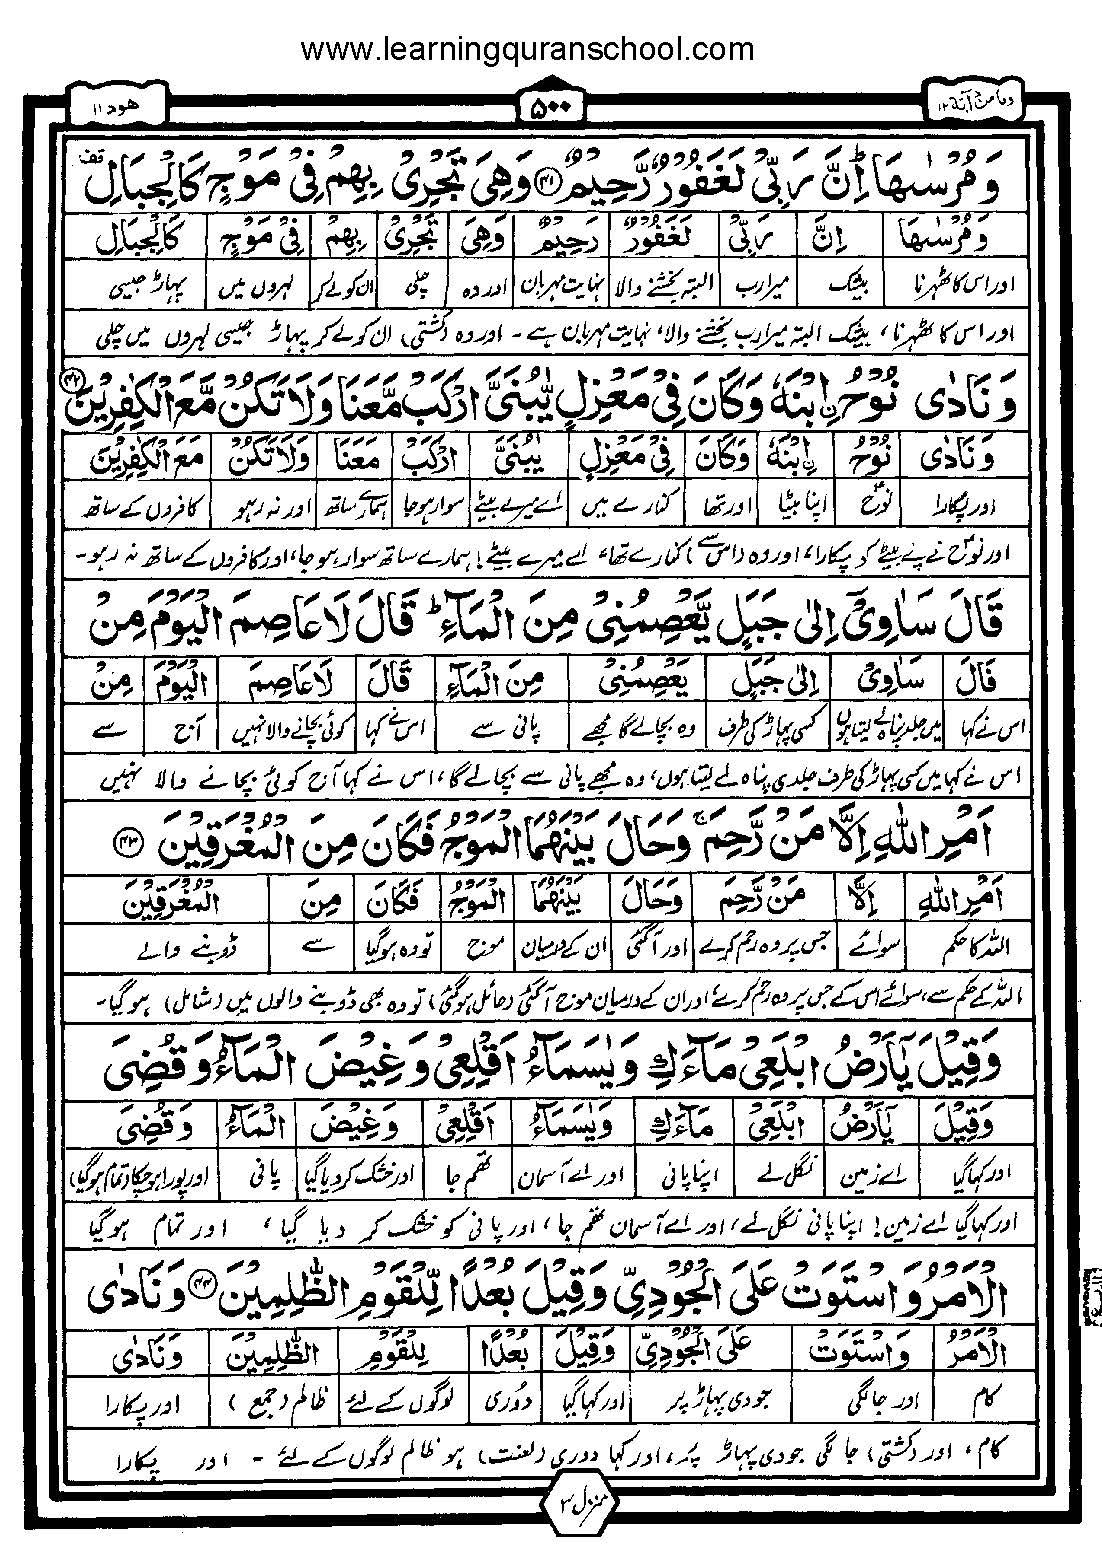 www.learningquranschool.com
ومامن دآبة ۱۲ ۵۰۰ هود ۱۱
وَمُرْسٰىهَا ؕ اِنَّ رَبِّیْ لَغَفُوْرٌ رَّحِیْمٌ ﴿۴۱﴾ وَهِیَ تَجْرِیْ بِهِمْ فِیْ مَوْجٍ كَالْجِبَالِ قف
وَمُرْسٰىهَا اِنَّ رَبِّیْ لَغَفُوْرٌ رَحِیْمٌ وَهِیَ تَجْرِیْ بِهِمْ فِیْ مَوْجٍ كَالْجِبَالِ
اور اس کا ٹھہرنا بیشک میرا رب البتہ بخشنے والا نہایت مہربان اور وہ چلی ان کو لے کر لہروں میں پہاڑ جیسی
اور اس کا ٹھہرنا، بیشک البتہ میرا رب بخشنے والا، نہایت مہربان ہے۔ اور وہ (کشتی) ان کو لے کر پہاڑ جیسی لہروں میں چلی
وَنَادٰی نُوْحُ ِ۟ابْنَهٗ وَكَانَ فِیْ مَعْزِلٍ یّٰبُنَیَّ ارْكَبْ مَّعَنَا وَلَا تَكُنْ مَّعَ الْكٰفِرِیْنَ ﴿۴۲﴾
وَنَادٰی نُوْحُ ِ۟ابْنَهٗ وَكَانَ فِیْ مَعْزِلٍ یٰبُنَیَّ ارْكَبْ مَعَنَا وَلَا تَكُنْ مَعَ الْكٰفِرِیْنَ
اور پکارا نوحؑ اپنا بیٹا اور تھا کنارے میں اے میرے بیٹے سوار ہو جا ہمارے ساتھ اور نہ رہو کافروں کے ساتھ
اور نوحؑ نے اپنے بیٹے کو پکارا، اور وہ (اس سے) کنارے تھا، اے میرے بیٹے! ہمارے ساتھ سوار ہو جا، اور کافروں کے ساتھ نہ رہو۔
قَالَ سَاٰوِیْۤ اِلٰی جَبَلٍ یَّعْصِمُنِیْ مِنَ الْمَآءِ ؕ قَالَ لَا عَاصِمَ الْیَوْمَ مِنْ
قَالَ سَاٰوِیْ اِلٰی جَبَلٍ یَعْصِمُنِیْ مِنَ الْمَآءِ قَالَ لَا عَاصِمَ الْیَوْمَ مِنْ
اس نے کہا میں جلد پناہ لے لیتا ہوں کسی پہاڑ کی طرف وہ بچالے گا مجھے پانی سے اس نے کہا کوئی بچانے والا نہیں آج سے
اس نے کہا میں کسی پہاڑ کی طرف جلدی پناہ لے لیتا ہوں، وہ مجھے پانی سے بچالے گا، اس نے کہا آج کوئی بچانے والا نہیں
اَمْرِ اللّٰهِ اِلَّا مَنْ رَّحِمَ ۚ وَحَالَ بَیْنَهُمَا الْمَوْجُ فَكَانَ مِنَ الْمُغْرَقِیْنَ ﴿۴۳﴾
اَمْرِ اللّٰهِ اِلَّا مَنْ رَّحِمَ وَحَالَ بَیْنَهُمَا الْمَوْجُ فَكَانَ مِنَ الْمُغْرَقِیْنَ
اللہ کا حکم سوائے جس پر وہ رحم کرے اور آگئی ان کے درمیان موج تو وہ ہوگیا سے ڈوبنے والے
اللہ کے حکم سے، سوائے اس کے جس پر وہ رحم کرے، اور ان کے درمیان موج آگئی (حائل ہوگئی) تو وہ بھی ڈوبنے والوں میں (شامل) ہوگیا۔
وَقِیْلَ یٰۤاَرْضُ ابْلَعِیْ مَآءَكِ وَیٰسَمَآءُ اَقْلِعِیْ وَغِیْضَ الْمَآءُ وَقُضِیَ
وَقِیْلَ یٰۤاَرْضُ ابْلَعِیْ مَآءَكِ وَیٰسَمَآءُ اَقْلِعِیْ وَغِیْضَ الْمَآءُ وَقُضِیَ
اور کہا گیا اے زمین نگل لے اپنا پانی اور اے آسمان تھم جا اور خشک کر دیا گیا پانی اور پورا ہوچکا (تمام ہوگیا)
اور کہا گیا اے زمین! اپنا پانی نگل لے، اور اے آسمان تھم جا، اور پانی کو خشک کر دیا گیا، اور تمام ہوگیا
الْاَمْرُ وَاسْتَوَتْ عَلَی الْجُوْدِیِّ وَقِیْلَ بُعْدًا لِّلْقَوْمِ الظّٰلِمِیْنَ ﴿۴۴﴾ وَنَادٰی
الْاَمْرُ وَاسْتَوَتْ عَلَی الْجُوْدِیِّ وَقِیْلَ بُعْدًا لِلْقَوْمِ الظّٰلِمِیْنَ وَنَادٰی
کام اور جا لگی جودی پہاڑ پر اور کہا گیا دوری لوگوں کے لئے ظالم (جمع) اور پکارا
کام، اور (کشتی) جا لگی جودی پہاڑ پر، اور کہا دوری (لعنت) ہو ظالم لوگوں کے لئے۔ اور پکارا
منزل ۳